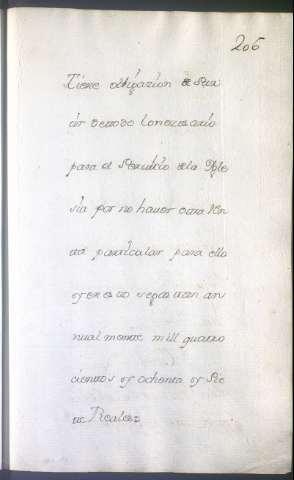 206
Tiene obligazion de Serv
ir detodo lo necesario
para el Servizio dela Ygle
sia por no haver otra Ren
ta particular para ello
y en esto se gastan an
nual mente mill quatro
cientos y ochenta y Sie
te Reales